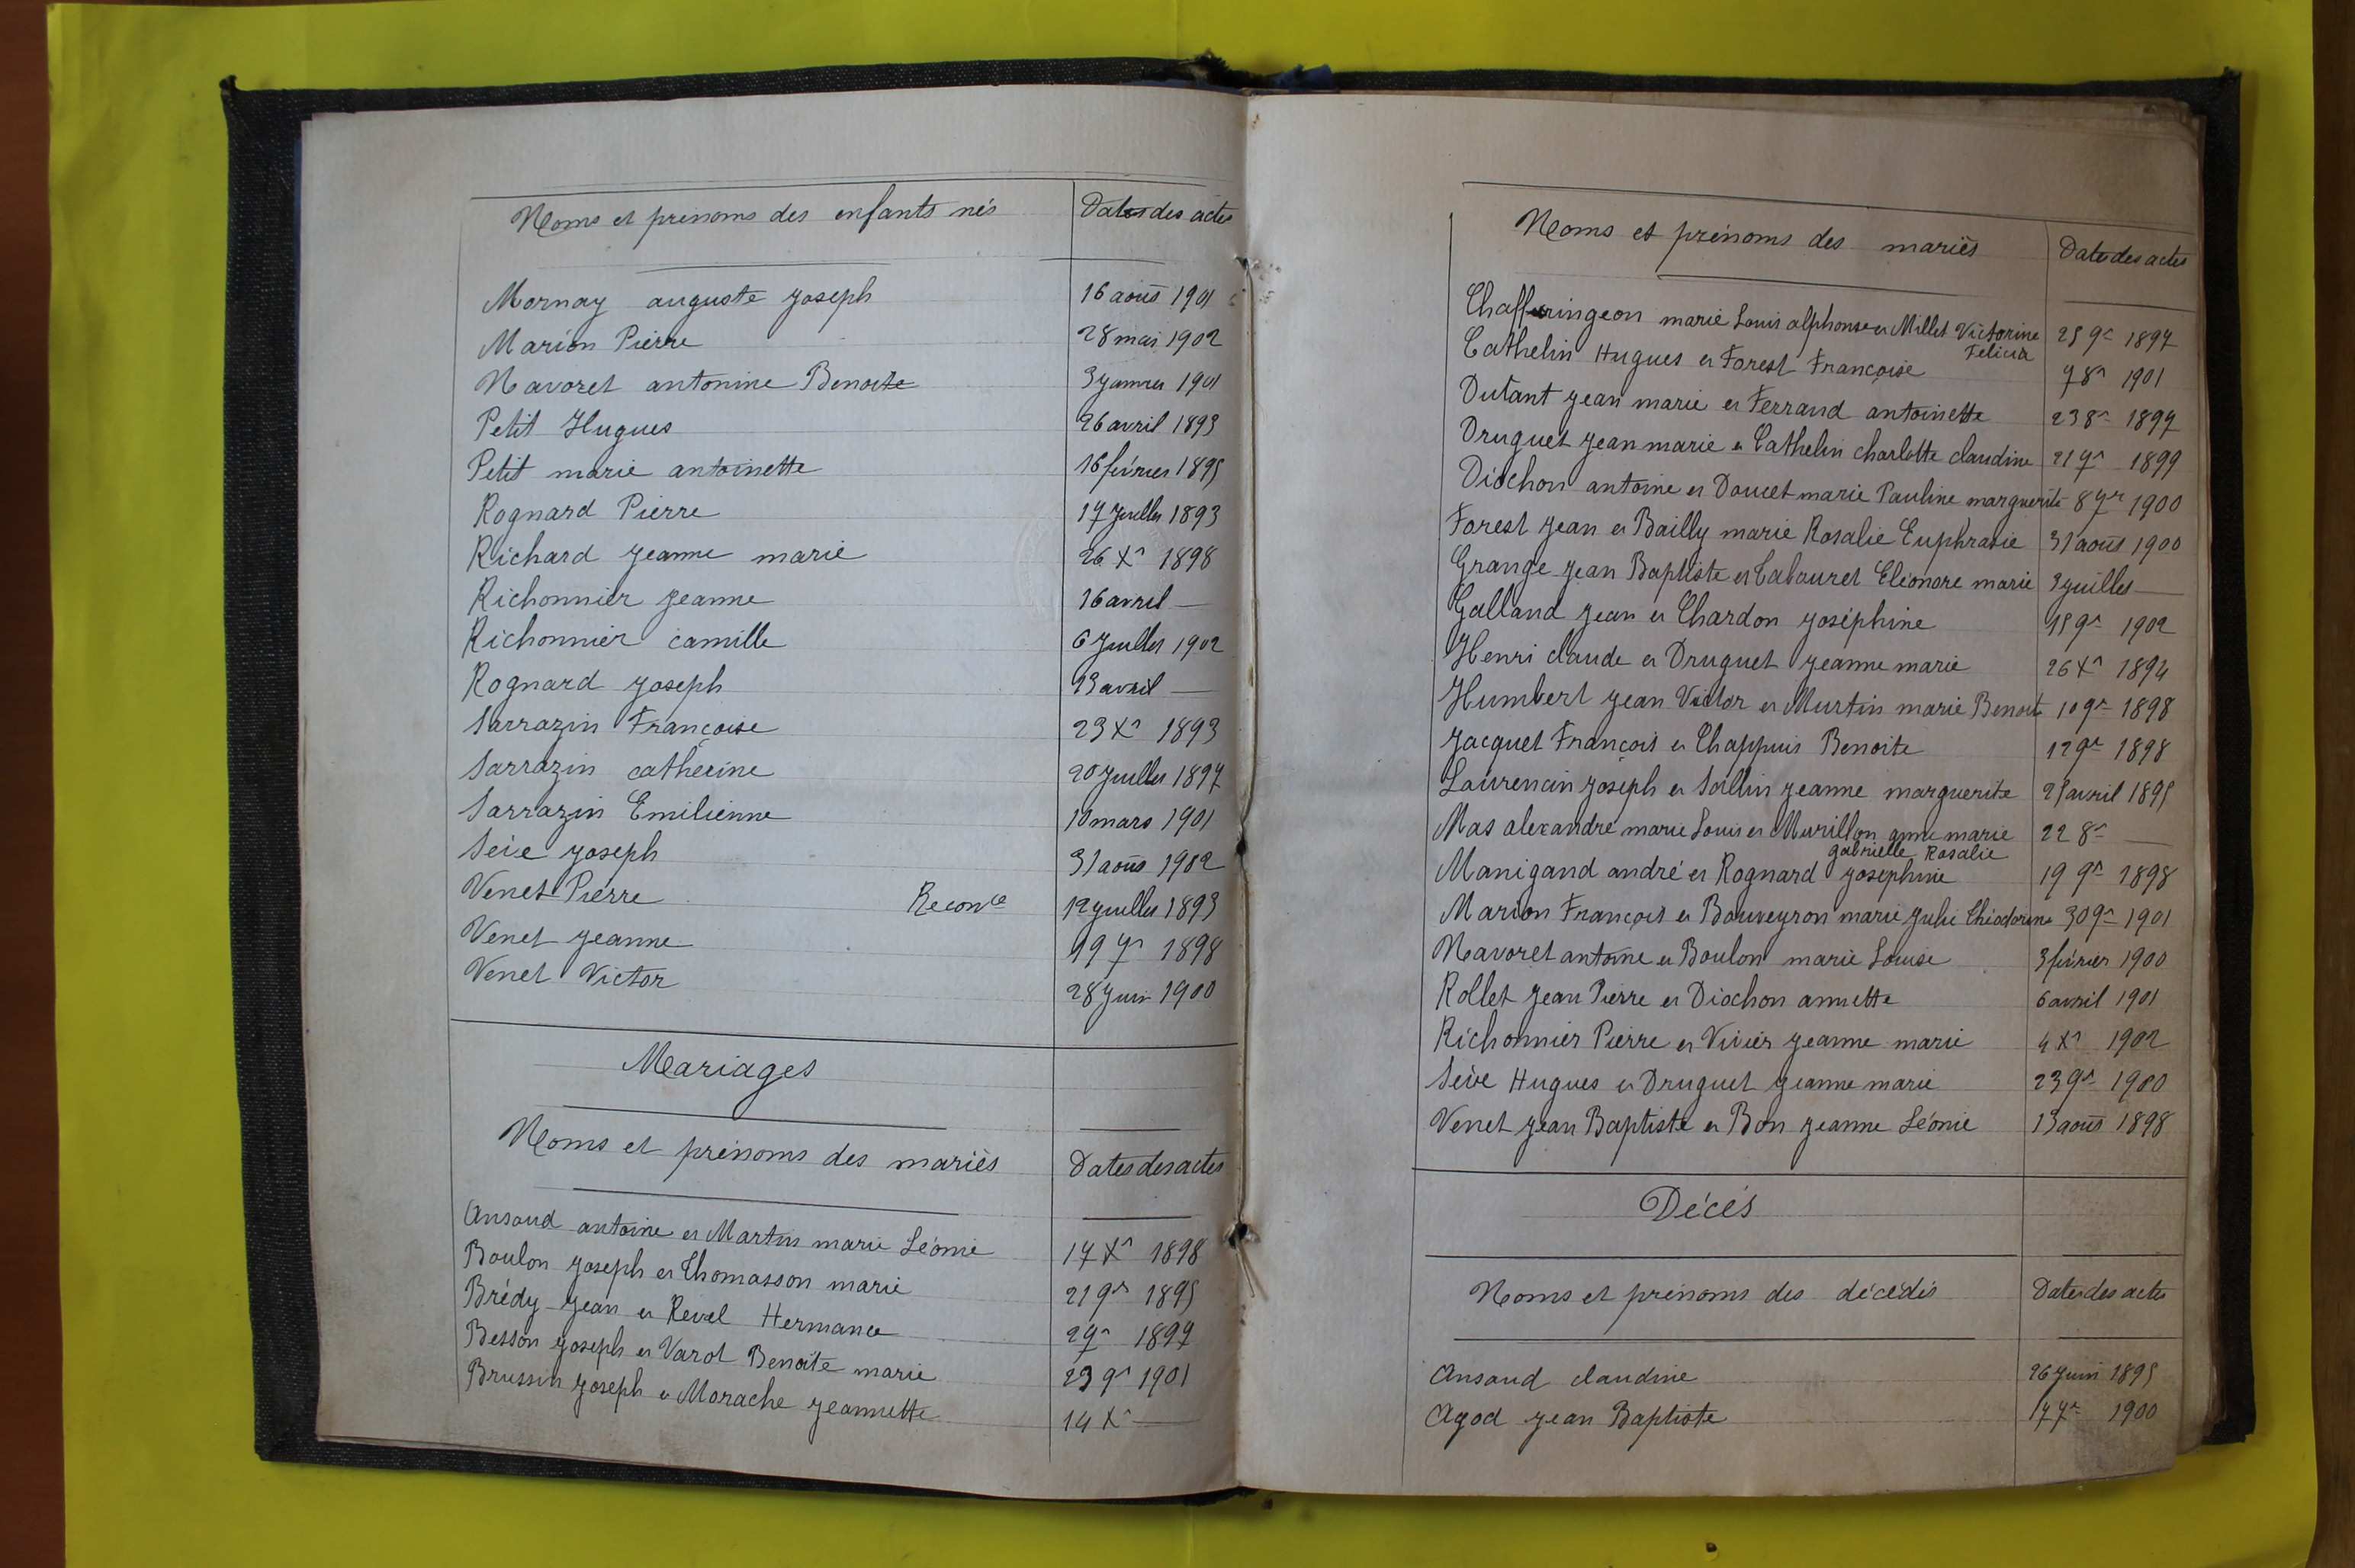 Noms et prénoms des enfants nés Dates des actes
Mornay auguste Joseph 16 août 1901
Marion Pierre 28 mai 1902
Navoret antonine Benoite 3 janvier 1901
Petit Hugues 26 avril 1893
Petit marie antoinette 16 février 1895
Rognard Pierre 17 Juillet 1893
Richard Jeanne marie 26 Xr 1898
Richonnier Jeanne 16 avril —
Richonnier camille 6 Juillet 1902
Rognard Joseph 23 avril —
Sarrazin Françoise 23 Xr 1893
Sarrazin catherine 20 Juillet 1897
Sarrazin Emilienne 10 mars 1901
Seive Joseph 31 août 1902
Venet Pierre Reconce 12 juillet 1893
Venet Jeanne 19 7r 1898
Venet Victor 28 Juin 1900
Mariages
Noms et prénoms des mariés Dates des actes
Ansoud antoine et Martin marie Léonie 17 Xr 1898
Boulon Joseph et Thomasson marie 21 9r 1895
Brédy Jean et Revel Hermance 2 7r 1897
Besson Joseph et Varot Benoite marie 23 9r 1901
Brussin Joseph et Morache Jeannette 14 Xr —
Noms et prénoms des mariés Dates des actes
Chaffringeon marie Louis alphonse et Millet Victorine 25 9r 1897
Felicia
Cathelin Hugues et Forest Françoise 7 8r 1901
Dutant Jean marie et Ferrand antoinette 23 8r 1897
Druguet Jean marie et Cathelin charlotte claudine 21 7r 1899
Diochon antoine et Doucet marie Pauline marguerite 8 7r 1900
Forest Jean et Bailly marie Rosalie Euphrasie 31 août 1900
Grange Jean Baptiste et Cabouret Eléonore marie 3 juillet —
Galland Jean et Chardon Joséphine 15 9r 1902
Henri claude et Druguet Jeanne marie 26 Xr 1894
Humbert Jean Victor et Murtin marie Benoite 10 9r 1898
Jacquet François et Chappuis Benoite 12 9r 1898
Laurencin Joseph et Sallin Jeanne marguerite 25 avril 1895
Mas alexandre marie Louis et Murillon anne marie 22 8r —
gabrielle Rosalie
Manigand andré et Rognard Josephine 19 9r 1898
Marion François et Bouveyron marie Julie Théodorine 30 9r 1901
Navoret antoine et Boulon marie Louise 3 février 1900
Rollet Jean Pierre et Diochon annette 6 avril 1901
Richonnier Pierre et Vivier Jeanne marie 4 Xr 1902
Seive Hugues et Druguet Jeanne marie 23 9r 1900
Venet Jean Baptiste et Bon Jeanne Léonie 13 août 1898
Décés
Noms et prénoms des décédés Dates des actes
Ansoud claudine 26 Juin 1895
Agod Jean Baptiste 17 7r 1900